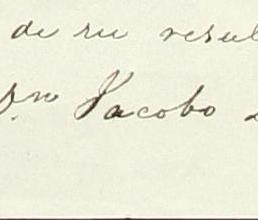 de su resul
Dn Jacobo